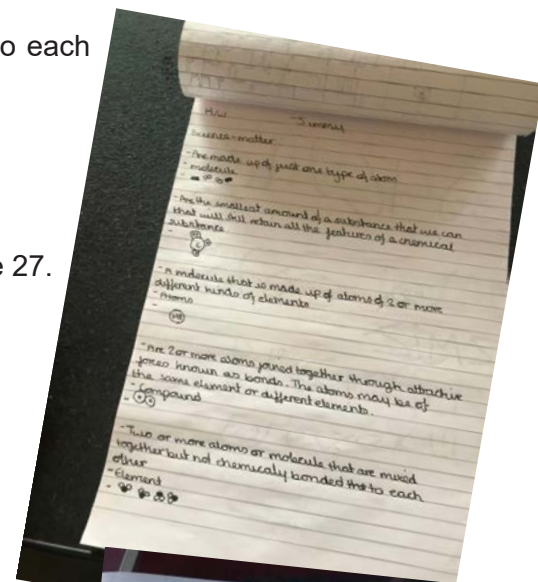 o each
e 27.
H/W
Science - matter
- Are made up of just one type of atom
- molecule
- Are the smallest amount of a substance that we can
that will still retain all the features of a chemical
substance
- A molecule that is made up of atoms of 2 or more
different kinds of elements
- Atoms
- Are 2 or more atoms joined together through attractive
forces known as bonds. The atoms may be of
the same element or different elements.
- Compound
- Two or more atoms or molecule that are mixed
together but not chemicaly bonded to each
other
- Element